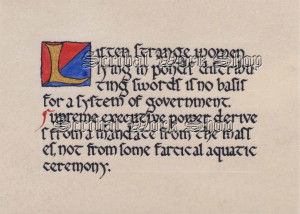 Listen strange women
lying in ponds distribu
ting swords is no basis
for a system of government.
Supreme executive power derive
s from a mandate from the mass
es, not from some farcical aquatic
ceremony.
Scribal Work Shop
Scribal Work Shop